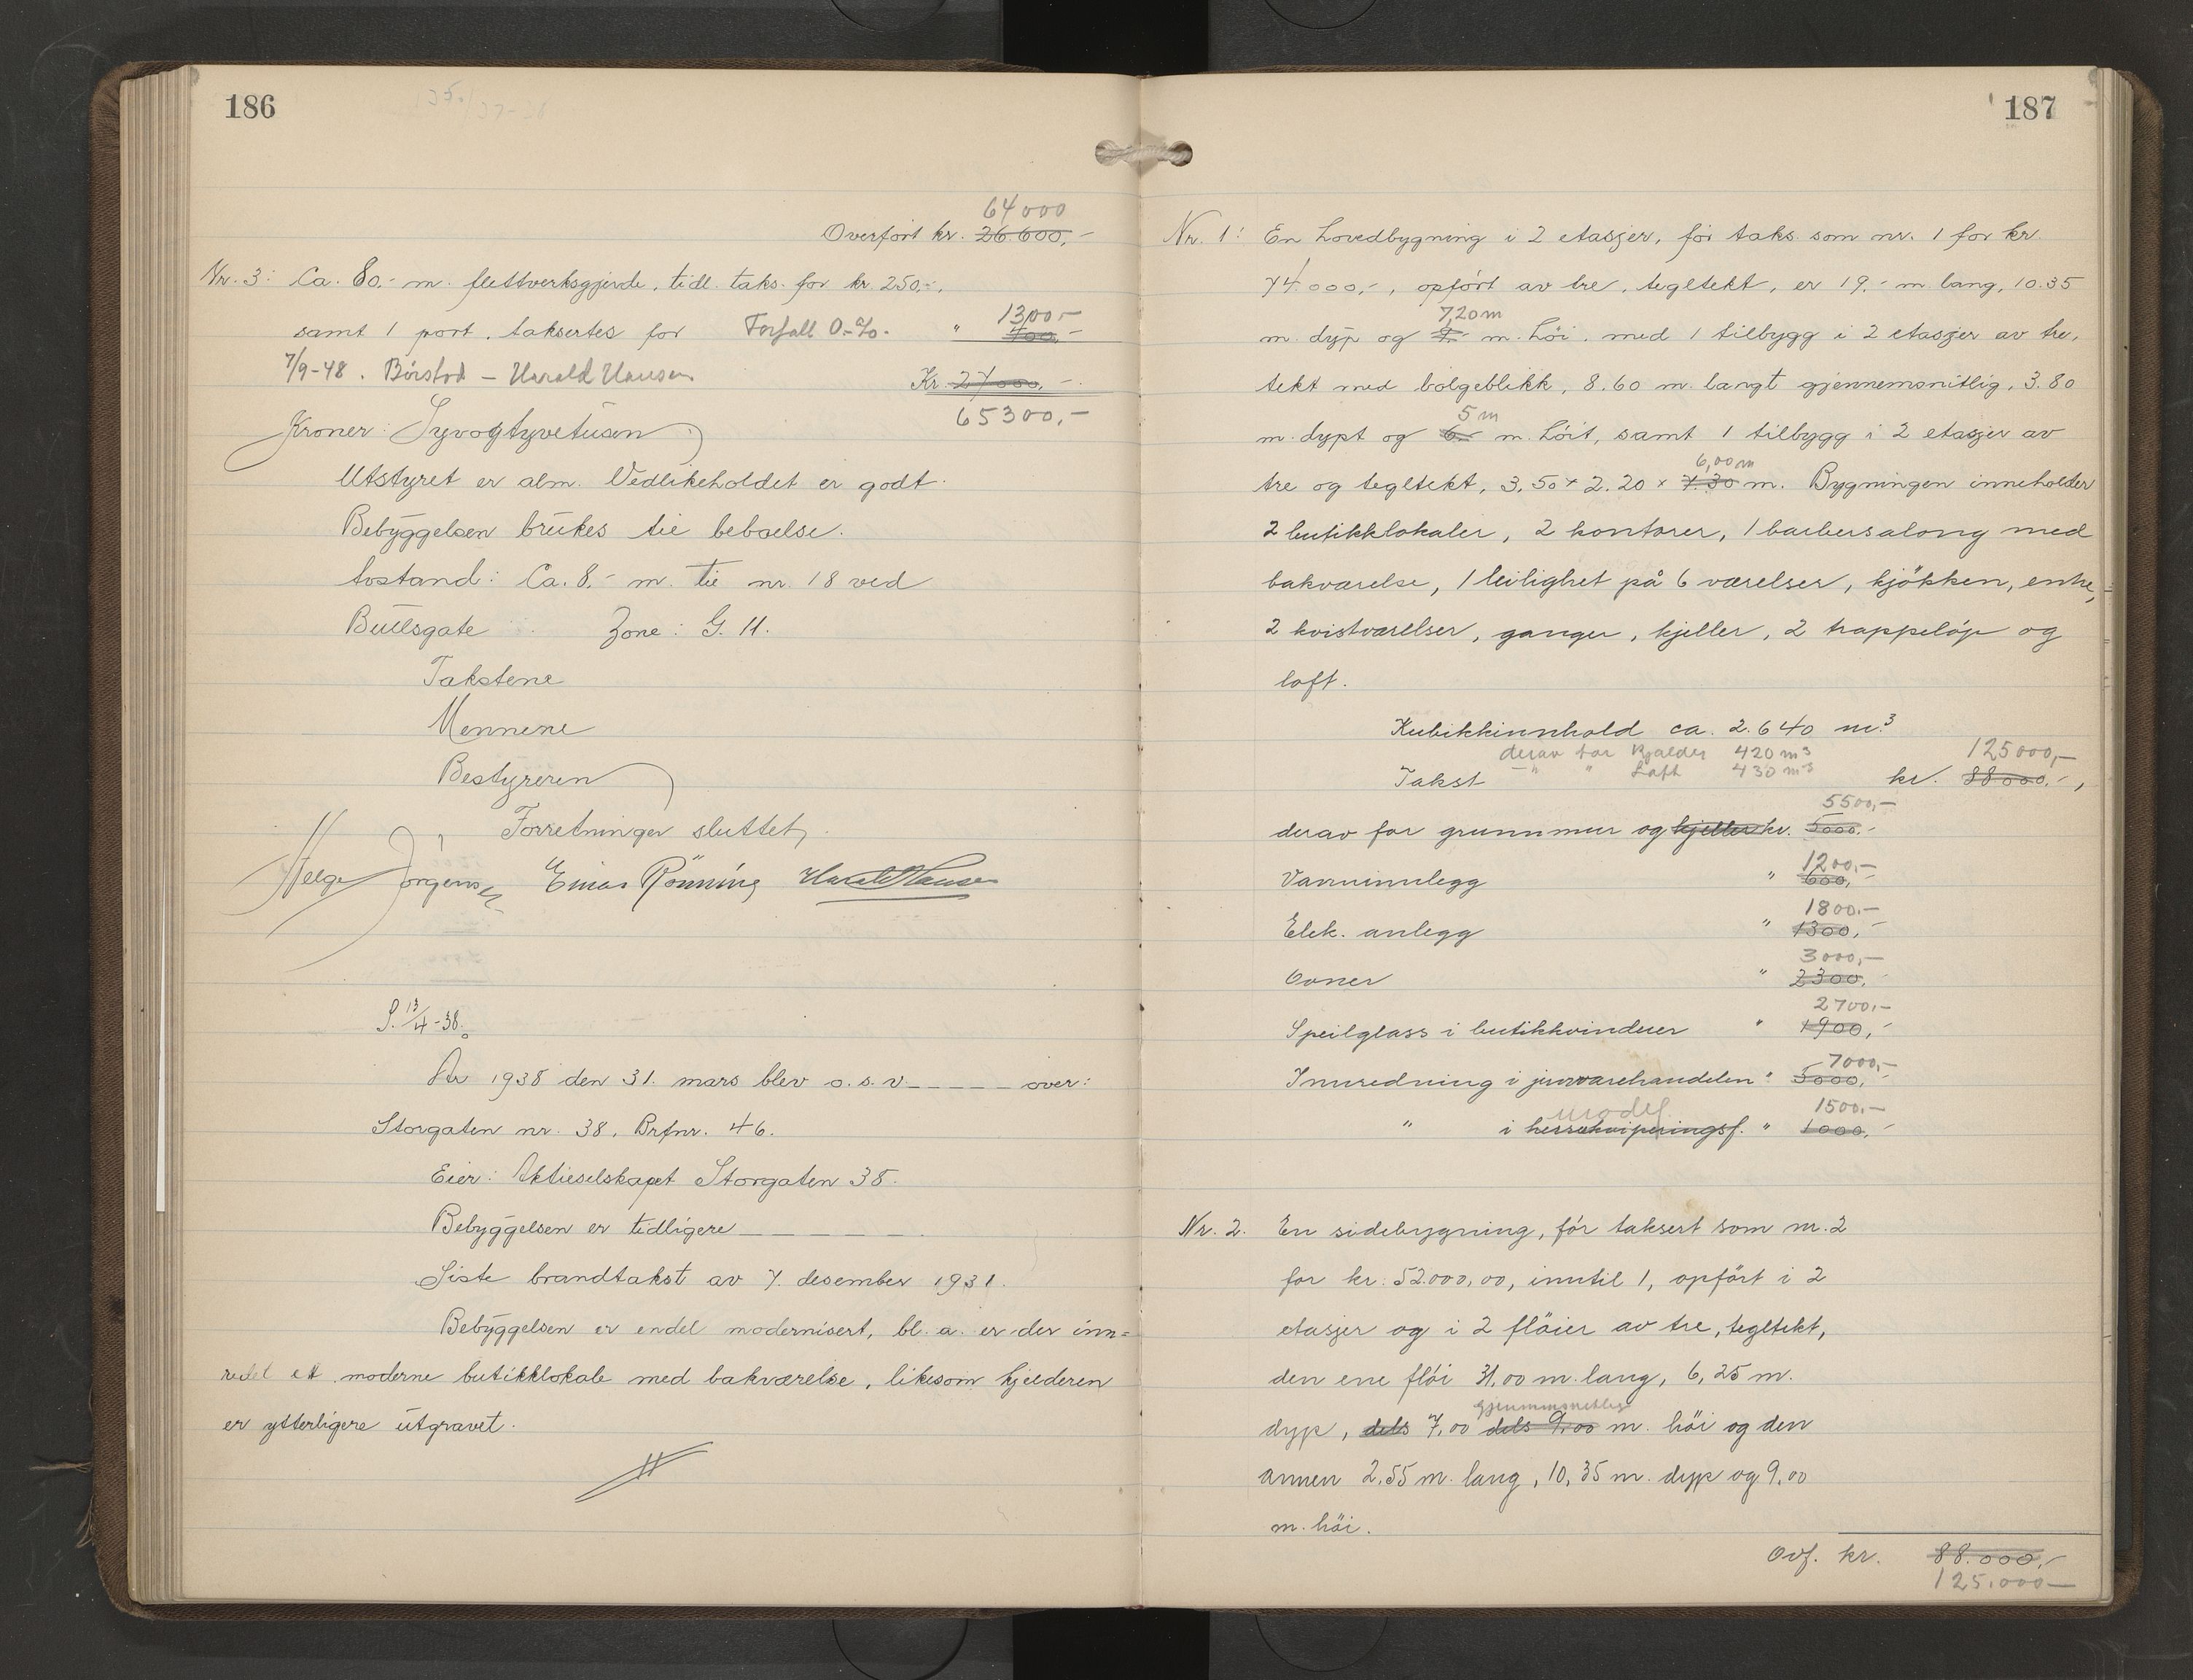 186
64000
Overført kr. 26.600,-
Nr. 3: Ca. 80,- m. flettverksgjerde, tidl. taks. for kr. 250,-,
samt 1 port, taksertes for Forfall 0-%. " 1300,- 400,-
7/9-48. Børstad - Harald Hansen Kr. 27000,-
65300,-
Kroner: Syvogtyvetusen
Utstyret er alm. Vedlikeholdet er godt.
Bebyggelsen brukes til beboelse.
Avstand: Ca. 8,- m. til nr. 18 ved
Bullsgate. Zone: G. 11.
Takstene
Mennene
Bestyreren
Forretningen sluttet,
Helge Jørgensen Einar Rönning Harald Hansen
S. 13/4-38.
År 1938 den 31. mars blev o. s. v. _ _ _ _ over:
Storgaten nr. 38, Brfnr. 46.
Eier: Aktieselskapet Storgaten 38.
Bebyggelsen er tidligere _ _ _ _ _
Siste brandtakst av 7. desember 1931.
Bebyggelsen er endel modernisert, bl. a. er der inn=
redet ett moderne butikklokale med bakværelse, likesom kjelderen
er ytterligere utgravet.
187
Nr. 1: En hovedbygning i 2 etasjer, før taks. som nr. 1 for kr.
74.000,-, opført av tre, tegltekt, er 19,- m. lang, 10.35
7,20 m
m. dyp og 9.- m. høi, med 1 tilbygg i 2 etasjer av tre,
tekt med bølgeblikk, 8.60 m. langt gjennemsnitlig, 3.80
5 m
m. dypt og 6.- m. høit, samt 1 tilbygg i 2 etasjer av
6,00 m
tre og tegltekt, 3.50 x 2.20 x 7.30 m. Bygningen inneholder
2 butikklokaler, 2 kontorer, 1 barbersalong med
bakværelse, 1 leilighet på 6 værelser, kjökken, entre,
2 kvistværelser, ganger, kjeller, 2 trappeløp og
loft.
Kubikkinnhold ca. 2.640 m.³
derav for Kjelder 420 m³ 125000,-
-"- " Loft 430 m³
Takst kr. 88000,-,
5500,-
derav for grunnmur og kjeller kr. 5000,-
1200,-
Vanninnlegg " 600,-
1800,-
Elek. anlegg " 1300,-
3000,-
Ovner " 2300,-
2700,-
Speilglass i butikkvinduer " 1900,-
7000,-
Innredning i jernvarehandelen " 5000,-
1500,-
" i herreekviperingsf. " 1000,-
Nr. 2. En sidebygning, før taksert som nr. 2
for kr. 52.000,00, inntil 1, opført i 2
etasjer og i 2 fløier av tre, tegltekt,
den ene fløi 31,00 m. lang, 6,25 m.
gjennemsnitlig
dyp, dels 7,00 dels 9,00 m. høi og den
annen 2,55 m. lang, 10,35 m. dyp og 9,00
m. høi.
Ovf. kr. 88.000,-
125.000-